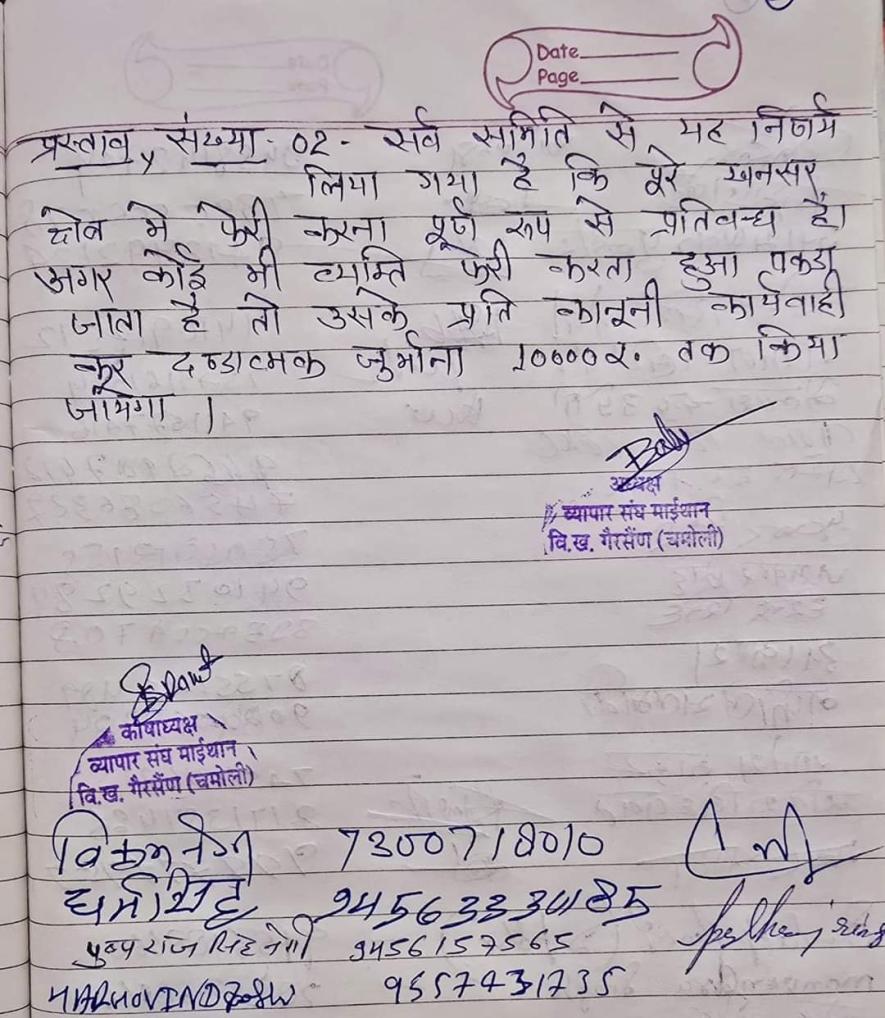 Date
Page
प्रस्ताव संख्या - 02 - सर्व समिति से यह निर्णय
लिया गया है कि पूरे खनसर
क्षेत्र मे फेरी करना पूर्ण रूप से प्रतिबन्ध है।
अगर कोई भी व्यक्ति फेरी करता हुआ पकड़ा
जाता है तो उसके प्रति कानूनी कार्यवाही
कर दण्डात्मक जुर्माना 10000रु. तक किया
जायेगा ।
अध्यक्ष
व्यापार संघ माईथान
वि.ख. गैरसैंण (चमोली)
कोषाध्यक्ष
व्यापार संघ माईथान
वि.ख. गैरसैंण (चमोली)
विक्रम नेगी 7300718010
धर्म सिंह
पुष्प राज सिंह नेगी 9456157565
9557431735